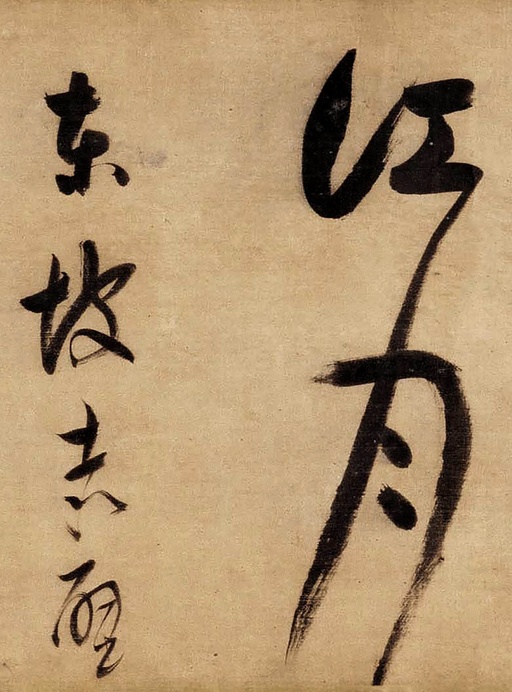 江月
东坡赤壁